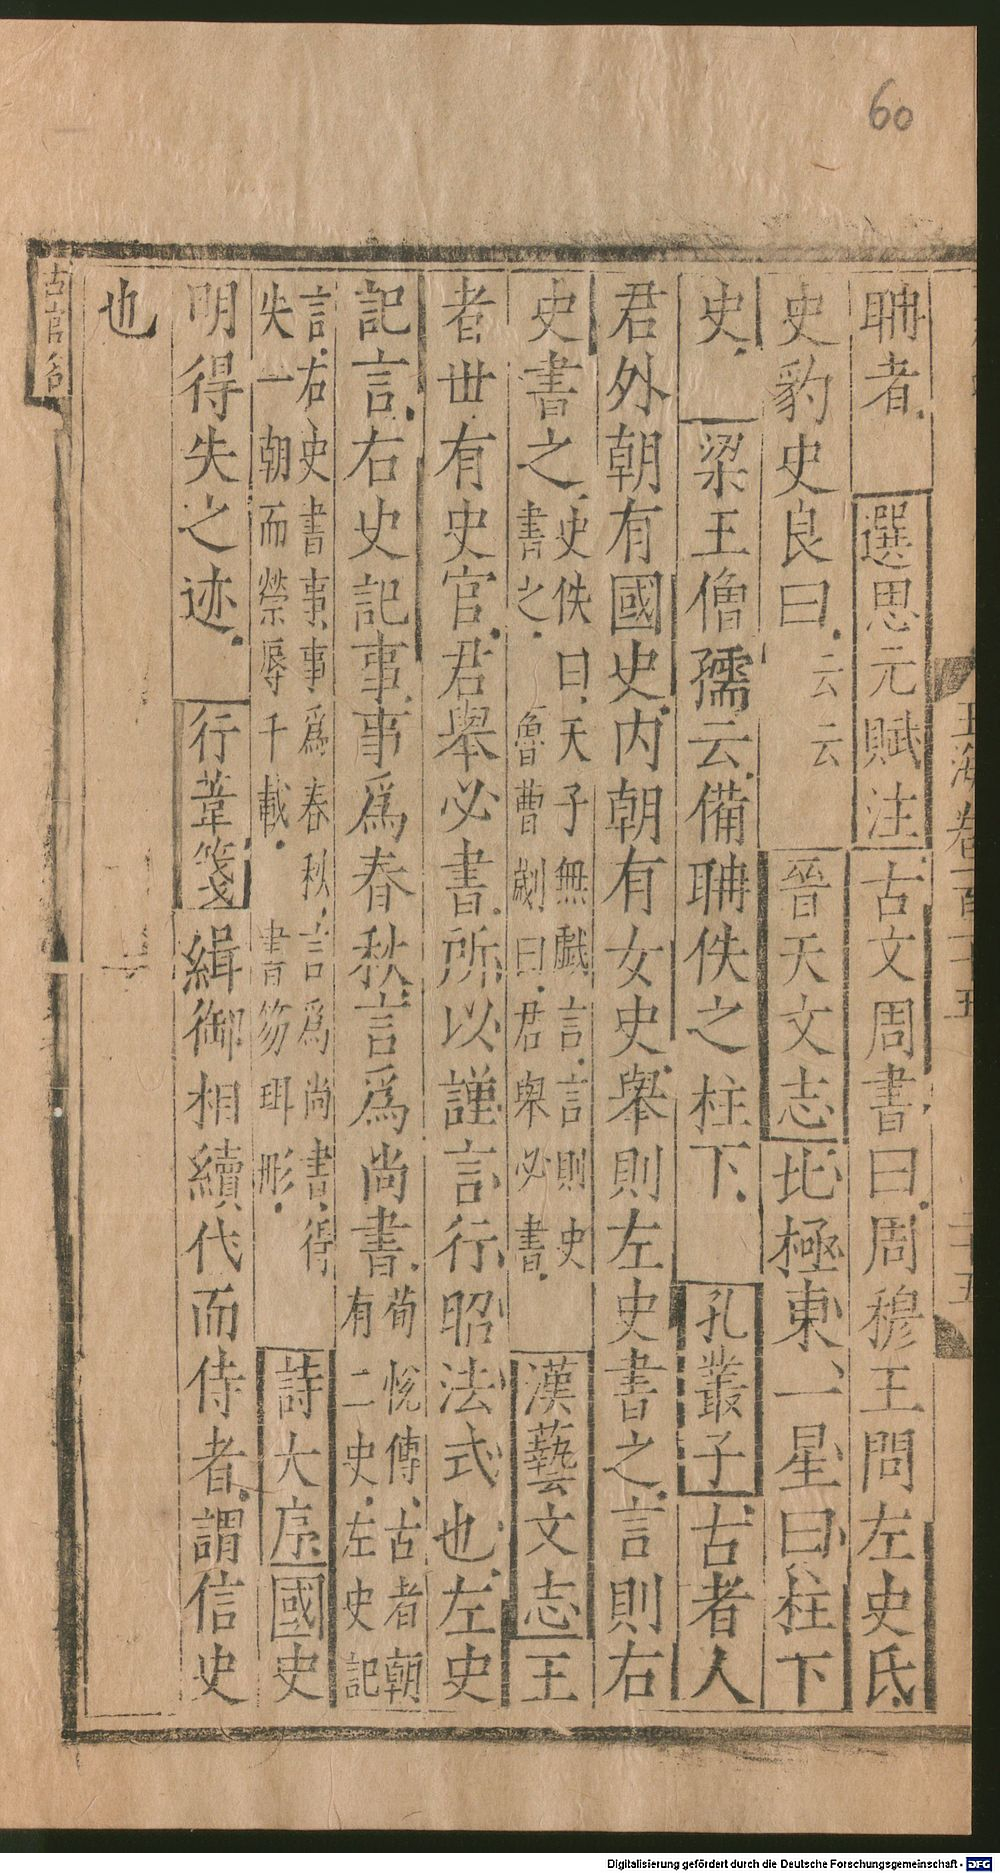 60
玉海卷一百二十五 二十五
聃者 選思元賦注 古文周書曰周穆王問左史氏
史豹史良曰 云云 晉天文志 北極東一星曰柱下
史 梁王僧孺云備聃佚之柱下 孔叢子 古者人
君外朝有國史内朝有女史舉則左史書之言則右
史書之 史佚曰天子無戲言言則史
書之 魯曹劌曰君舉必書 漢藝文志 王
者世有史官君舉必書所以謹言行昭法式也左史
記言右史記事事爲春秋言爲尚書 荀悅傳古者朝
有二史左史記
言右史書事事爲春秋言爲尚書得
失一朝而榮辱千載 書笏珥彤 詩大序 國史
明得失之迹 行葦箋 緝御相續代而侍者謂信史
也
古官名
Digitalisierung gefördert durch die Deutsche Forschungsgemeinschaft - DFG